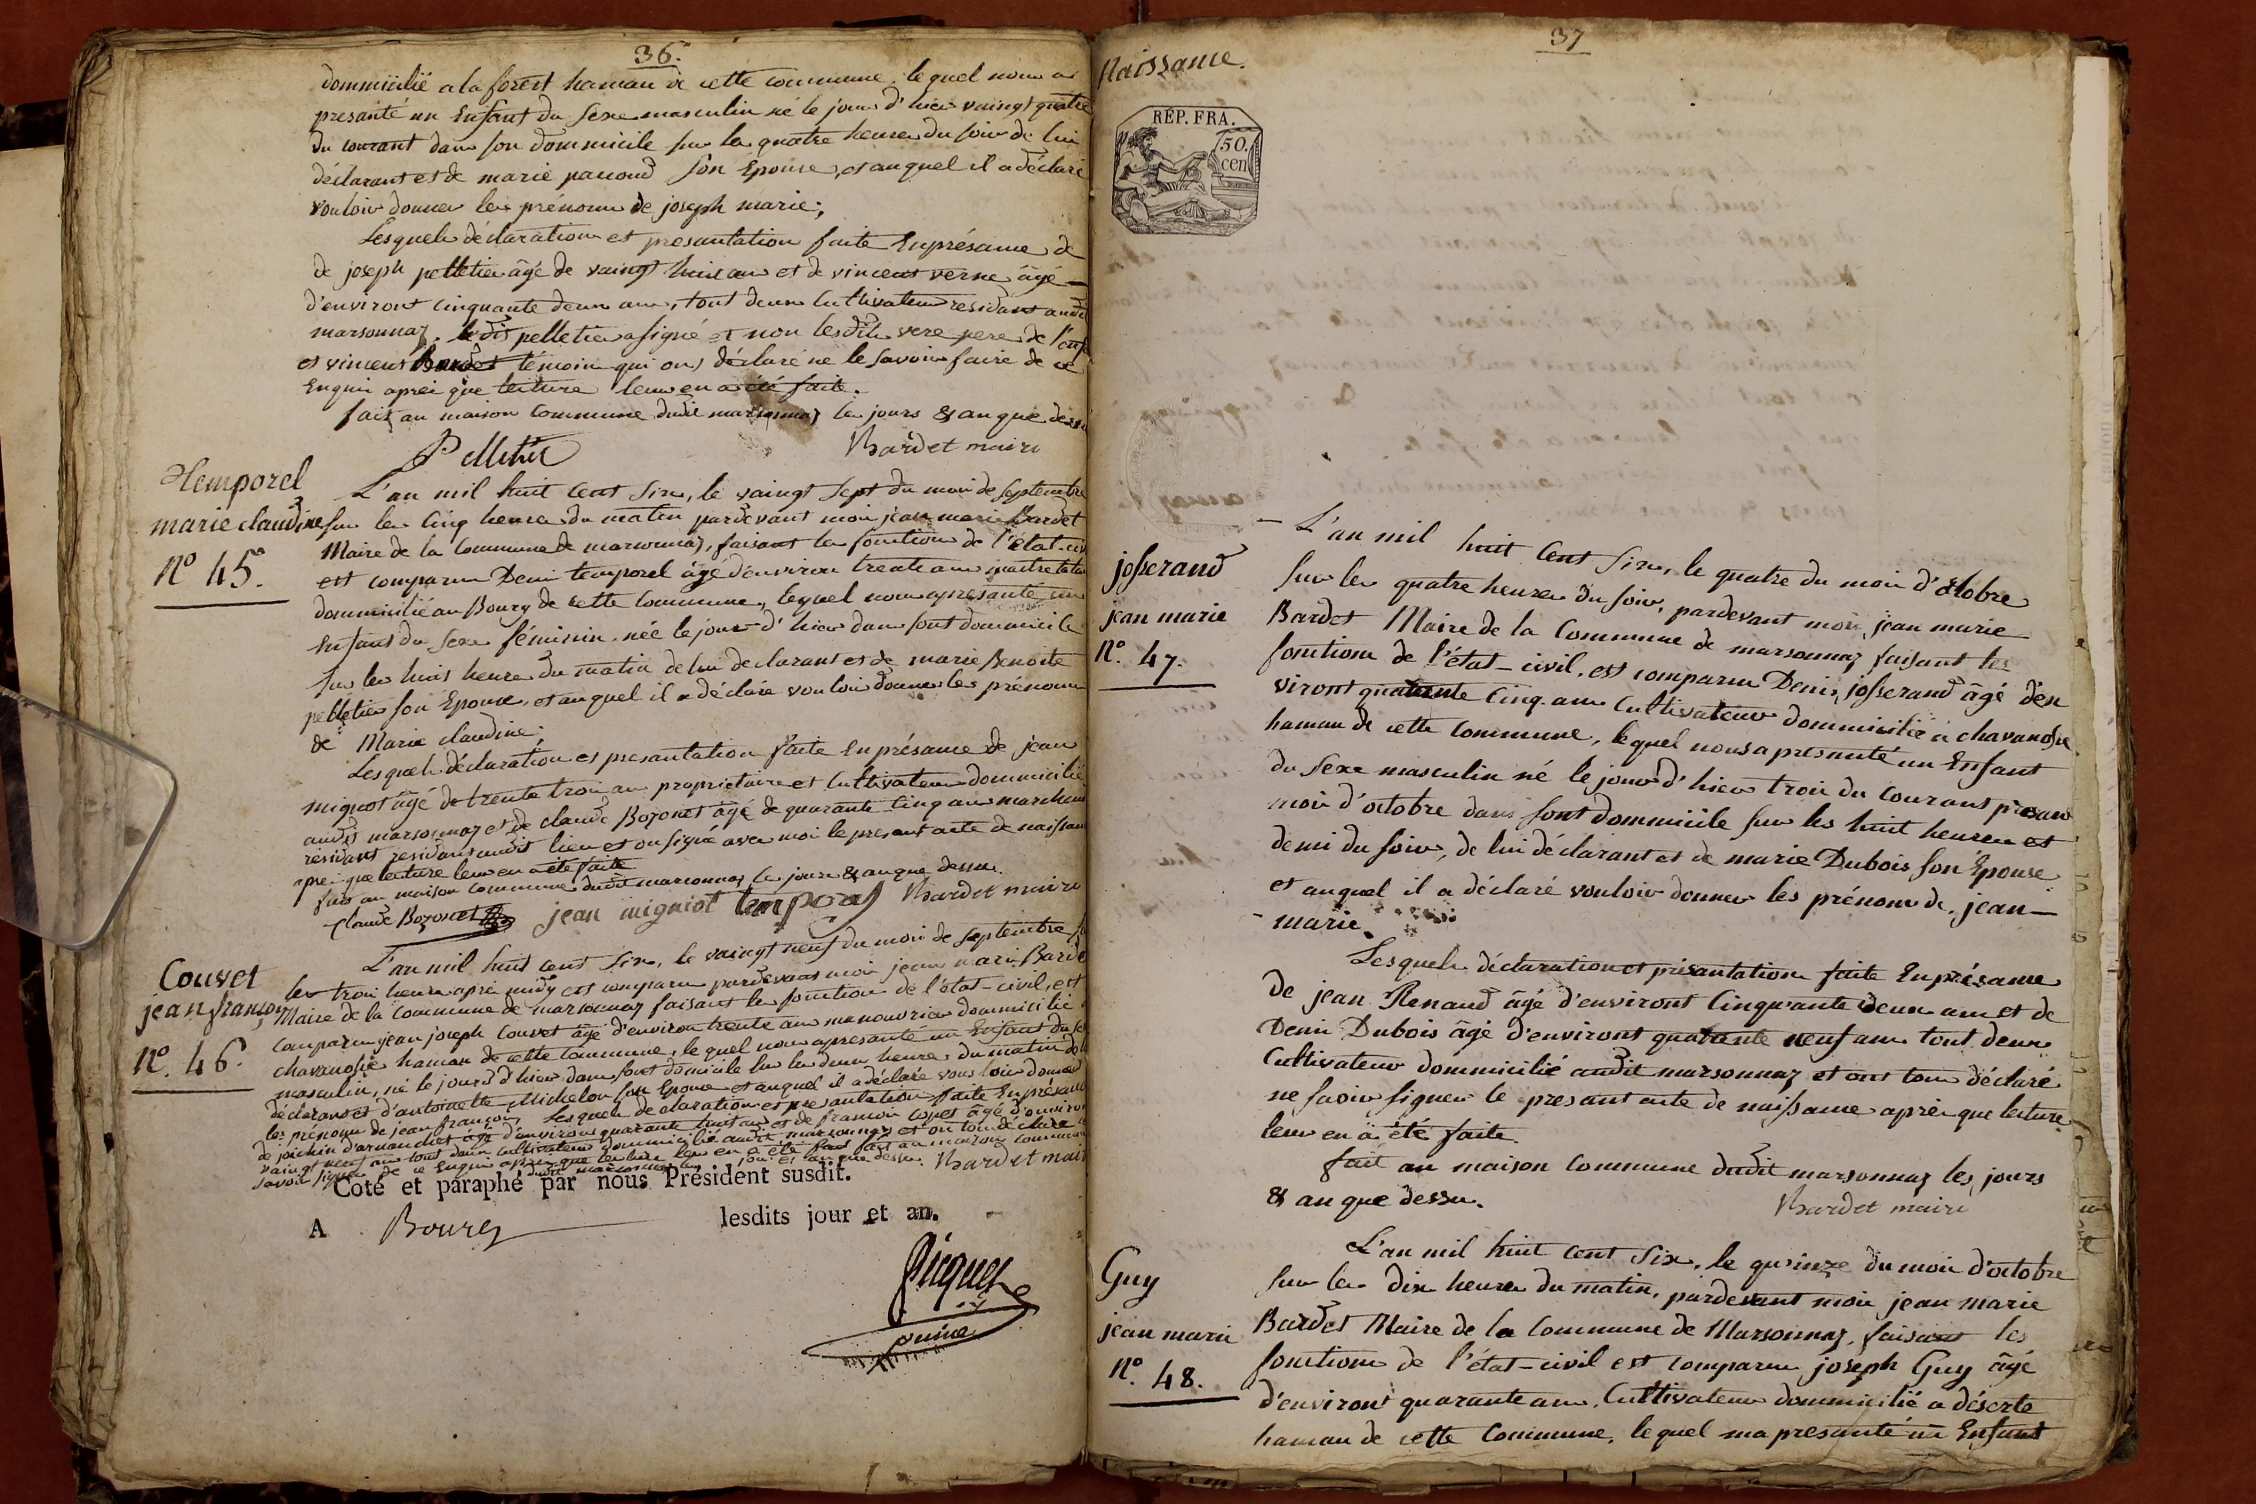 36.
dommicilié a la forest hamau de cette commune, lequel nous a
presanté un Enfant du sexe masculin né le jour d'hier vaingt quatre
du courant dans son dommicile sur la quatre heures du soir de lui
déclarant et de marie pacoud son Epouse, et auquel il a déclaré
vouloir donner les prénoms de joseph marie;
Lesquels déclaration et presantation faite Enprésance de
de joseph pelletier âgé de vaingt huit ans et de vincent verne âgé
d'environt cinquante deux ans, tout deux Cultivateur residant audit
marsonnaz. ledit pelletier a signé et non lesdits vere pere de l'enf
et vincent témoin qui ont déclaré ne le savoir faire de ce
Enquis aprei que lecture leur en a été faite.
fait au maison Commune dudit marsonnaz les jours & an que dessu
Pelletier Bardet maire
Temporel
marie claudine
N° 45.
L'an mil huit Cent Six, le vaingt Sept du mois de septembre
sur les Cinq heures du matin pardevant moi jean marie Bardet
Maire de la Commune de marsonnaz, faisant les fonctions de l'état-civ
est comparu Deni temporel âgé d'environ trente ans
dommicilié au Bourg de cette Commune, lequel nous a presanté un
Enfant du Sexe féminin née le jour d'hier dans sont dommicile
sur les huit heures du matin de lui declarant et de marie Benoite
pelletier son Epouse, et auquel il a déclaré vouloir donner les prénoms
de Marie claudine;
Lesquels déclaration et presantation faite Enprésance de jean
mignot âgé de trente trois ans proprietaire et Cultivateur dommicilié
audit marsonnaz et de claude Bozonet âgé de quarante Cinq ans marchand
résidant residant audit lieu et on signé avec moi le present acte de naissan
aprei que lecture leur en a été faite
fait au maison Commune dudit marsonnaz les jours & an que dessu.
Claude Bozonet jean migniot temporal Bardet maire
Couvet
jean françois
N°. 46.
L'an mil huit cent Six, le vaingt neuf du mois de Septembre
les trois heures aprei midy est comparu pardevant moi jean marie Barde
Maire de la Commune de marsonnaz faisant les fonctions de l'état-civil, est
comparu jean joseph Couvet âgé d'environ trente ans manouvrier dommicilié
chavanosse hamau de cette Commune, lequel nous a presanté un Enfant du se
masculin, né le jour d'hier dans sont domicile sur les deux heures du matin de
déclarant et d'antoinette Michelon son Epouse et auquel il a déclaré vouloir donner
les prénoms de jean françois, Lesquels declaration et presantation faite Enprésan
de d'arnanchet âgé d'environ quarante huit ans et de francois âgé d'environ
vaingt neuf ans tout deux Cultivateur dommicilié audit marsonnaz et on tous déclaré
savoir signer de ce Enquis aprei que lecture leur en a été faite fait au maison commune
dudit marsonnaz les jours et an que dessu. Bardet mair
Coté et paraphé par nous Président susdit.
A Bourg lesdits jour et an.
Picquet
37
Naissance.
RÉP. FRA.
50.
cen
josserand
jean marie
N°. 47.
L'an mil huit Cent Six, le quatre du mois d'octobre
sur les quatre heures du soir, pardevant moi, jean marie
Bardet Maire de la Commune de marsonnaz faisant les
fonctions de l'état-civil, est comparu Denis josserand âgé d'en
viront quarante Cinq ans Cultivateur dommicilié à chavanosse
hamau de cette Commune, lequel nous a presanté un Enfant
du Sexe masculin né le jour d'hier trois du Courant présant
mois d'octobre dans sont dommicile sur les huit heures et
demi du soir, de lui déclarant et de marie Dubois son Epouse
et auquel il a déclaré vouloir donner les prénoms de, jean—
marie.
Lesquels déclaration et présantation faite Enprésance
de jean Renaud âgé d'environt Cinquante deux ans et de
Denis Dubois âgé d'environt quarante neuf ans tout deux
Cultivateur dommicilié audit marsonnaz et ont tous déclaré
ne savoir signer le presant acte de naissance aprèi que lecture
leur en a été faite.
fait au maison Commune dudit marsonnaz les jours
& an que dessu.
Bardet maire
Guy
jean marie
N°. 48.
L'an mil huit Cent Six, le quinze du mois d'octobre
sur les dix heures du matin, pardevant moi, jean marie
Bardet Maire de la Commune de Marsonnaz, faisant les
fonctions de l'état-civil est comparu joseph Guy âgé
d'environt quarante ans, Cultivateur dommicilié a déserte
hamau de cette Commune, lequel m'a presanté un Enfant